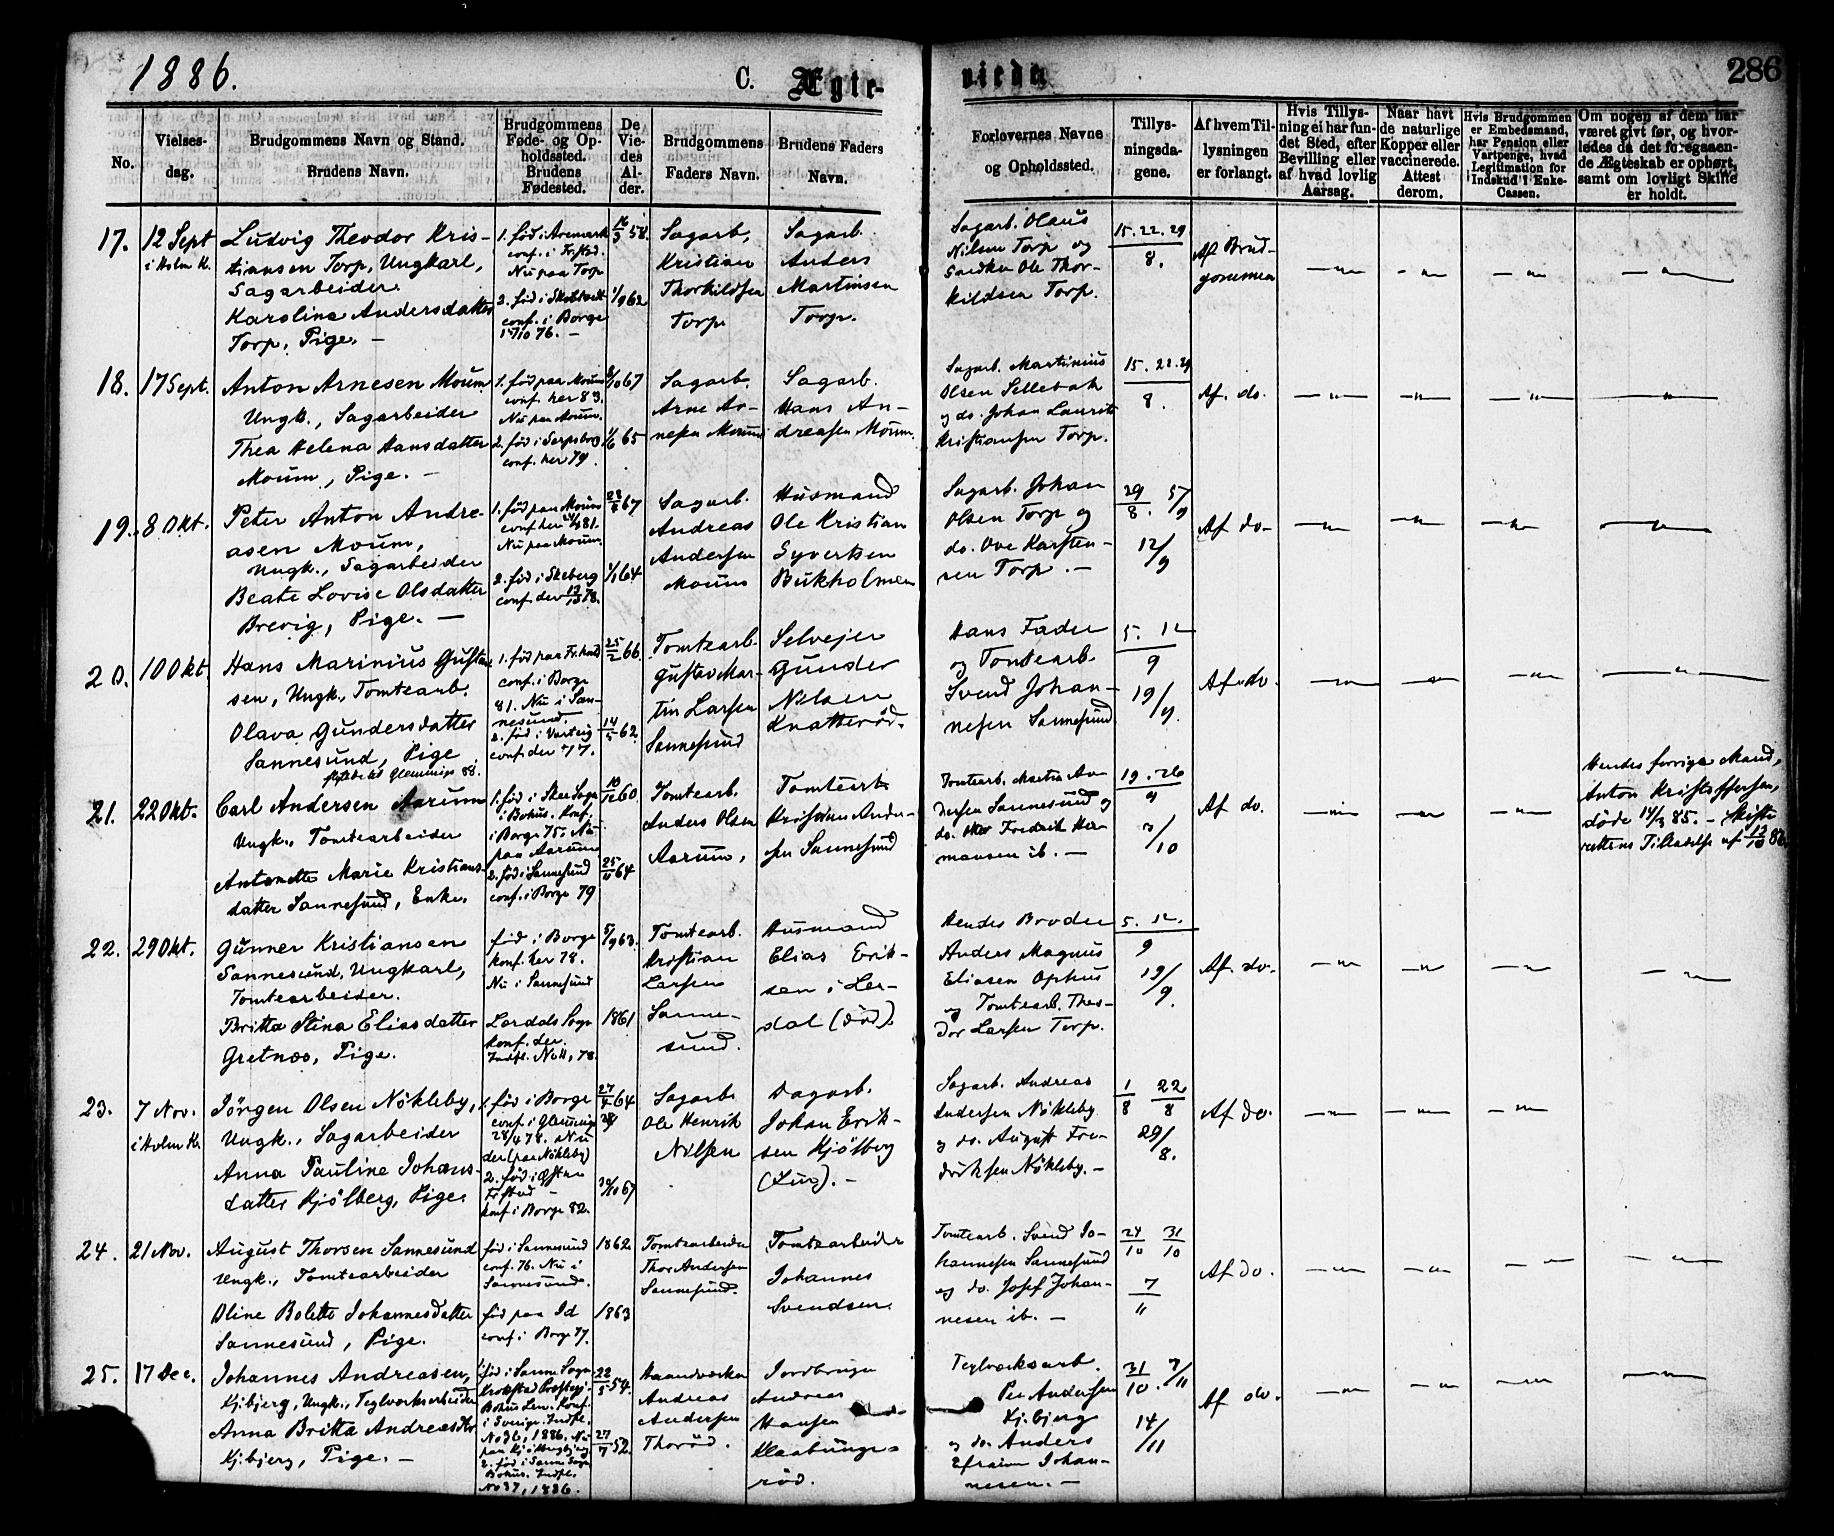 1886.
C. Ægte-
viede.
286
No.
Vielses-
dag.
Brudgommens Navn og Stand.
Brudens Navn.
Brudgommens
Føde- og Op-
holdssted.
Brudens
Fødested.
De
Vie-
des
Al-
der.
Brudgommens
Faders Navn.
Brudens Faders
Navn.
Forlovernes Navne
og Opholdssted.
Tillys-
ningsda-
gene.
Af hvem Til-
lysningen
er forlangt.
Hvis Tillys-
ning ei har fun-
det Sted, efter
Bevilling eller
af hvad lovlig
Aarsag.
Naar havt
de naturlige
Kopper eller
vaccinerede.
Attest
derom.
Hvis Brudgommen
er Embedsmand,
har Pension eller
Vartpenge, hvad
Legitimation for
Indskud i Enke-
Cassen.
Om nogen af dem har
været givt før, og hvor-
ledes da det foregaaen-
de Ægteskab er ophørt,
samt om lovligt Skifte
er holdt.
17.
12 Sept
i Holm K.
Ludvig Theodor Kris-
tiansen Torp, Ungkarl,
Sagarbeider.
Karoline Andersdatter
Torp, Pige. —
1. fød i Aremark
conf. i Frstad.
Nu paa Torp
2. fød i Skibtvedt
conf. i Borge
1/10 76. —
16/3 58.
1/9 62
Sagarb.
Kristian
Thorkildsen
Torp
Sagarb.
Anders
Martinsen
Torp.
Sagarb. Olaus
Nilsen Torp og
Ole Thor-
kildsen Torp.
15. 22. 29
8.
Af Brud-
gommen
18.
17 Sept.
Anton Arnesen Moum
Ungk., Sagarbeider
Thea Helena Hansdatter
Moum, Pige. —
1. fød paa Moum
conf. her 83.
Nu paa Moum.
2. fød i Sarpsborg
conf. her 79.
8/10 67
1/6 65
Sagarb.
Arne Ar-
nesen Moum
Sagarb.
Hans An-
dreasen Moum.
Sagarb. Martinius
Olsen Sellebak
og do. Johan Laurits
Kristiansen Torp.
15. 22. 29
8.
Af. do.
19.
8 Okt.
Peter Anton Andre-
asen Moum,
Ungk., Sagarbeider
Beate Lovise Olsdatter
Brevig, Pige. —
1. fød paa Moum
conf her 81.
Nu paa Moum.
2. fød i Skeberg
conf. der 78.
67
1/1 64
Sagarb.
Andreas
Andersen
Moum
Husmand
Ole Kristian
Syvertsen
Bukholmen
Sagarb. Johan
Olsen Torp og
do. Ove Karsten-
sen Torp. —
29/8. 5/9
12/9
Af do-
20.
10 Okt.
Hans Marinius Gustav-
sen, Ungk., Tomtearb.
Olava Gundersdatter
Sannesund, Pige
1. fød paa Fr.hald
conf. i Borge
81. Nu i San-
nesund.
2. fød i Varteig
conf. der 77.
25/2 66.
14/5 62.
Tomtearb.
Gustav Mar-
tin Larsen
Sannesund
Selvejer
Gunder
Nilsen
Knatterød.
Hans Fader
og Tomtearb.
Svend Johan-
nesen Sannesund
5. 12
9
19/9.
Af do.
21.
22 Okt.
Carl Andersen Aarum
Ungk., Tomtearbeider
Antonette Marie Kristians-
datter Sannesund, Enke.
1. fød i Skee Sogn
i Bohus. Konf.
i Borge 75. Nu
paa Aarum
2. fød i Sannesund
conf. i Borge 79
60
25/11 64
Tomtearb.
Anders Olsen
Aarum,
Tomtearb.
Kristian Ander-
sen Sannesund
Tomtearb. Martin An-
dersen Sannesund og
do. Fredrik Her-
mansen ib. —
19. 26
9
3/10
Af do.
Hendes forrige Mand,
Anton Kristoffersen,
døde 14/3 85. — Skifte-
rettens Tilladelse af 12/10 86
22.
29 Okt.
Gunner Kristiansen
Sannesund, Ungkarl,
Tomtearbeider.
Britta Stina Eliasdatter
Gretnæs, Pige.
fød i Borge
konf. her 78.
Nu i Sannesund
Lerdals Sogn
konf. der.
Indfl. No 11, 78.
5/9 63.
1861
Tomtearb.
Kristian
Larsen
Sanne-
sund.
Husmand
Elias Erik-
sen i Ler-
dal (død).
Hendes Broder
Anders Magnus
Eliasen Ophus
og Tomtearb. Theo-
dor Larsen Torp.
5. 12.
9
19/9.
Af. do.
23.
7 Nov.
i Holm K.
Jörgen Olsen Nökleby,
Ungk., Sagarbeider
Anna Pauline Johans-
datter Kjölberg, Pige.
1. fød i Borge
conf i Glemminge
28/4 78. Nu
der (paa Nökleby)
2. fød i Østre
Frstad —
konf i Borge 82.
27/4 64
30/10 67
Sagarb.
Ole Henrik
Nilsen
Dagarb.
Johan Erik-
sen Kjölberg
(Lund). —
Sagarb. Andreas
Andersen Nökleby
og do. August Fre-
driksen Nökleby. —
1/8 22/8
29/8.
Af do.
24.
21 Nov.
August Thorsen Sannesund
Ungk., Tomtearbeider
Oline Bolette Johannesdatter
Sannesund, Pige.
fød i Sannesund
conf. 76. Nu i
Sannesund.
fød paa Id
conf. i Borge 77.
1862
1863
Tomtearbeider
Thor Andersen
Sannesund.
Tomtearbeider
Johannes
Svendsen
Tomtearb. Svend Jo-
hannesen Sannesund
og do. Josef Johan-
nesen ib. —
24/10 31/10
7/11
Af do.
25.
17 Dec.
Johannes Andreasen,
Kjibjerg, Ungk., Teglværksarbeider
Anna Britta Andreasdtr
Kjibjerg, Pige. —
fød i Sanne Sogn
Bohus Len. Konf.
i Sverige. Indfl.
No 36, 1886. Nu
2. fød i Sanne Sogn
Bohus. Indfl.
No 37, 1886.
22/3 54.
27/7 52.
Haandværker
Andreas
Andersen
Thorød.
Jordbruger
Andreas
Hansen
Klaabunge-
rød.
Teglværksarb.
Per Andersen
Kjibjerg
og do. Anders
Efraim Johan-
nesen. —
31/10. 7/11
14/11
Af do.